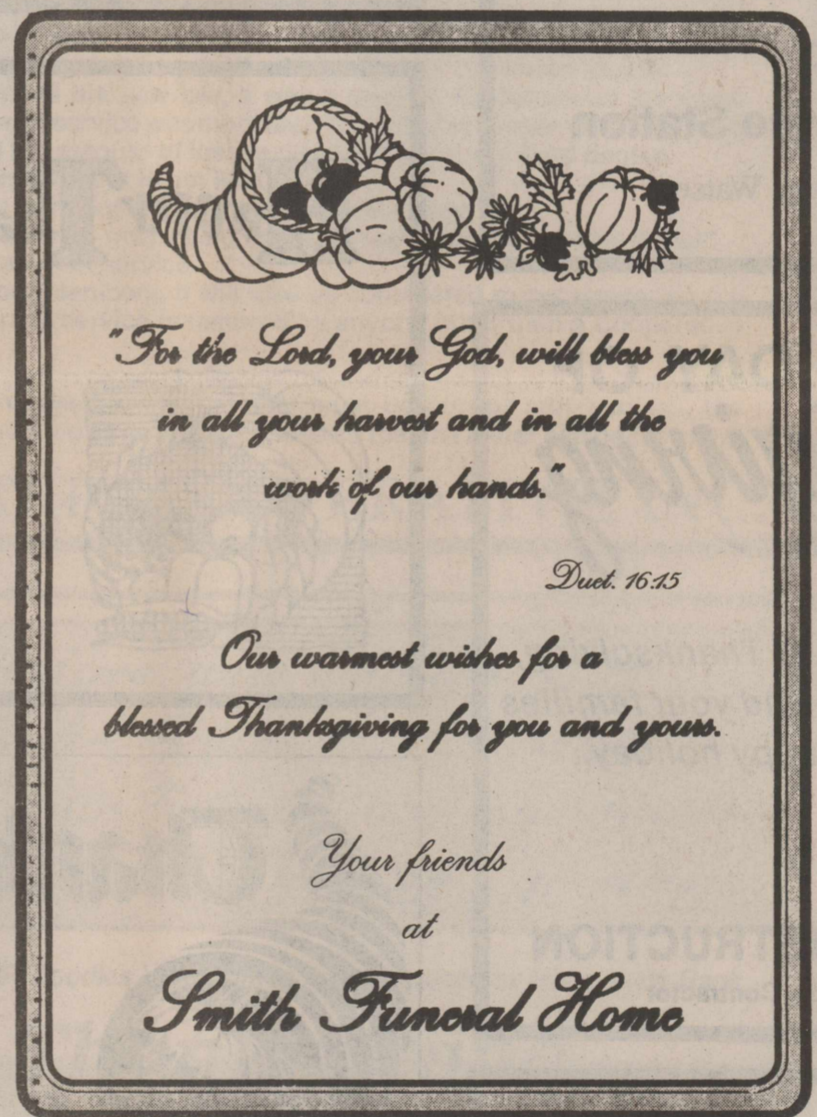 "For the Lord, your God, will bless you
in all your harvest and in all the
work of our hands."
Duet. 16:15
Our warmest wishes for a
blessed Thanksgiving for you and yours.
Your friends
at
Smith Funeral Home